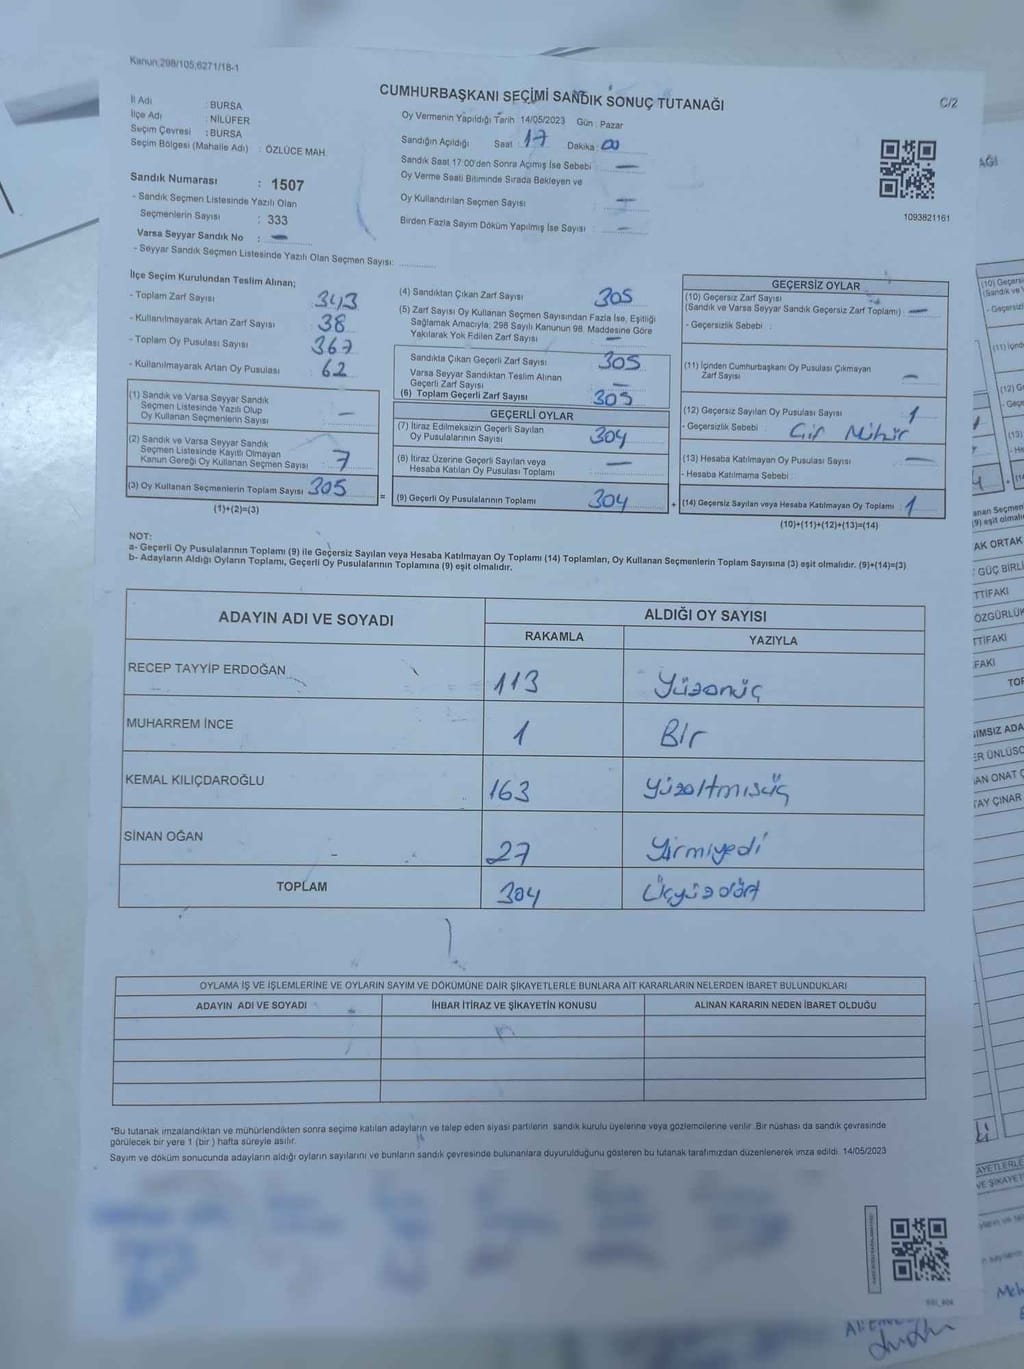 Kanun 298/105,6271/18-1
CUMHURBAŞKANI SEÇİMİ SANDIK SONUÇ TUTANAĞI
C/2
İl Adı : BURSA
İlçe Adı : NİLÜFER
Seçim Çevresi : BURSA
Seçim Bölgesi (Mahalle Adı) : ÖZLÜCE MAH.
Sandık Numarası : 1507
- Sandık Seçmen Listesinde Yazılı Olan
Seçmenlerin Sayısı : 333
Varsa Seyyar Sandık No : -
- Seyyar Sandık Seçmen Listesinde Yazılı Olan Seçmen Sayısı:
Oy Vermenin Yapıldığı Tarih 14/05/2023 Gün : Pazar
Sandığın Açıldığı Saat : 17 Dakika : 00
Sandık Saat 17:00'den Sonra Açımış İse Sebebi -
Oy Verme Saati Bitiminde Sırada Bekleyen ve
Oy Kullandırılan Seçmen Sayısı -
Birden Fazla Sayım Döküm Yapılmış İse Sayısı : -
1093821161
İlçe Seçim Kurulundan Teslim Alınan;
- Toplam Zarf Sayısı 343
- Kullanılmayarak Artan Zarf Sayısı 38
- Toplam Oy Pusulası Sayısı 367
- Kullanılmayarak Artan Oy Pusulası 62
(1) Sandık ve Varsa Seyyar Sandık
Seçmen Listesinde Yazılı Olup
Oy Kullanan Seçmenlerin Sayısı -
(2) Sandık ve Varsa Seyyar Sandık
Seçmen Listesinde Kayıtlı Olmayan
Kanun Gereği Oy Kullanan Seçmen Sayısı 7
(3) Oy Kullanan Seçmenlerin Toplam Sayısı 305
(1)+(2)=(3)
(4) Sandıktan Çıkan Zarf Sayısı 305
(5) Zarf Sayısı Oy Kullanan Seçmen Sayısından Fazla İse, Eşitliği
Sağlamak Amacıyla; 298 Sayılı Kanunun 98. Maddesine Göre
Yakılarak Yok Edilen Zarf Sayısı -
Sandıkta Çıkan Geçerli Zarf Sayısı 305
Varsa Seyyar Sandıktan Teslim Alınan
Geçerli Zarf Sayısı -
(6) Toplam Geçerli Zarf Sayısı 305
GEÇERLİ OYLAR
(7) İtiraz Edilmeksizin Geçerli Sayılan
Oy Pusulalarının Sayısı 304
(8) İtiraz Üzerine Geçerli Sayılan veya
Hesaba Katılan Oy Pusulası Toplamı -
= (9) Geçerli Oy Pusulalarının Toplamı 304
GEÇERSİZ OYLAR
(10) Geçersiz Zarf Sayısı
(Sandık ve Varsa Seyyar Sandık Geçersiz Zarf Toplamı) : -
- Geçersizlik Sebebi :
(11) İçinden Cumhurbaşkanı Oy Pusulası Çıkmayan
Zarf Sayısı -
(12) Geçersiz Sayılan Oy Pusulası Sayısı 1
- Geçersizlik Sebebi : Çif Mühür
(13) Hesaba Katılmayan Oy Pusulası Sayısı -
- Hesaba Katılmama Sebebi :
+ (14) Geçersiz Sayılan veya Hesaba Katılmayan Oy Toplamı : 1
(10)+(11)+(12)+(13)=(14)
NOT:
a- Geçerli Oy Pusulalarının Toplamı (9) ile Geçersiz Sayılan veya Hesaba Katılmayan Oy Toplamı (14) Toplamları, Oy Kullanan Seçmenlerin Toplam Sayısına (3) eşit olmalıdır. (9)+(14)=(3)
b- Adayların Aldığı Oyların Toplamı, Geçerli Oy Pusulalarının Toplamına (9) eşit olmalıdır.
ADAYIN ADI VE SOYADI ALDIĞI OY SAYISI
RAKAMLA YAZIYLA
RECEP TAYYİP ERDOĞAN 113 Yüzonüç
MUHARREM İNCE 1 Bir
KEMAL KILIÇDAROĞLU 163 Yüzaltmışüç
SİNAN OĞAN 27 Yirmiyedi
TOPLAM 304 Üçyüzdört
OYLAMA İŞ VE İŞLEMLERİNE VE OYLARIN SAYIM VE DÖKÜMÜNE DAİR ŞİKAYETLERLE BUNLARA AİT KARARLARIN NELERDEN İBARET BULUNDUKLARI
ADAYIN ADI VE SOYADI İHBAR İTİRAZ VE ŞİKAYETİN KONUSU ALINAN KARARIN NEDEN İBARET OLDUĞU
*Bu tutanak imzalandıktan ve mühürlendikten sonra seçime katılan adayların ve talep eden siyasi partilerin sandık kurulu üyelerine veya gözlemcilerine verilir. Bir nüshası da sandık çevresinde
görülecek bir yere 1 (bir) hafta süreyle asılır.
Sayım ve döküm sonucunda adayların aldığı oyların sayılarını ve bunların sandık çevresinde bulunanlara duyurulduğunu gösteren bu tutanak tarafımızdan düzenlenerek imza edildi. 14/05/2023